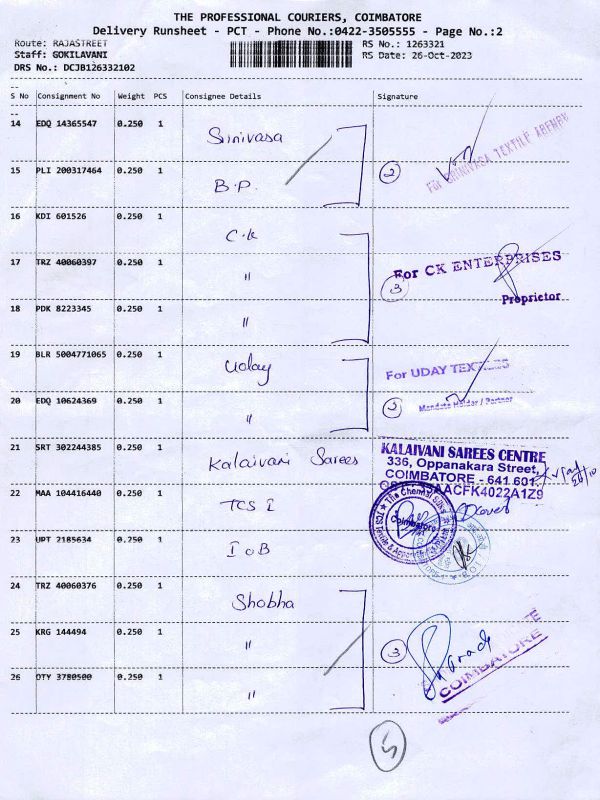 THE PROFESSIONAL COURIERS, COIMBATORE
Delivery Runsheet - PCT - Phone No.:0422-3505555 - Page No.:2
Route: RAJASTREET
RS No.: 1263321
Staff: GOKILAVANI
RS Date: 26-Oct-2023
DRS No.: DCJB126332102
--
S No Consignment No Weight PCS Consignee Details Signature
--
14 EDQ 14365547 0.250 1 Srinivasa
For SRINIVASA TEXTILE AGENCY
15 PLI 200317464 0.250 1 B.P. 2
16 KDI 601526 0.250 1 C.K
17 TRZ 40060397 0.250 1 "
For CK ENTERPRISES
3
Proprietor
18 PDK 8223345 0.250 1 "
19 BLR 5004771065 0.250 1 Uday
For UDAY TEXTILES
20 EDQ 10624369 0.250 1 "
Mandate Holder / Partner
21 SRT 302244385 0.250 1 Kalaivani Sarees
KALAIVANI SAREES CENTRE
336, Oppanakara Street,
COIMBATORE - 641 601.
22 MAA 104416440 0.250 1 TCS I
The Chennai Silks
Coimbatore
23 UPT 2185634 0.250 1 IOB
24 TRZ 40060376 0.250 1 Shobha
25 KRG 144494 0.250 1 " 3
COIMBATORE
26 OTY 3780500 0.250 1 "
5